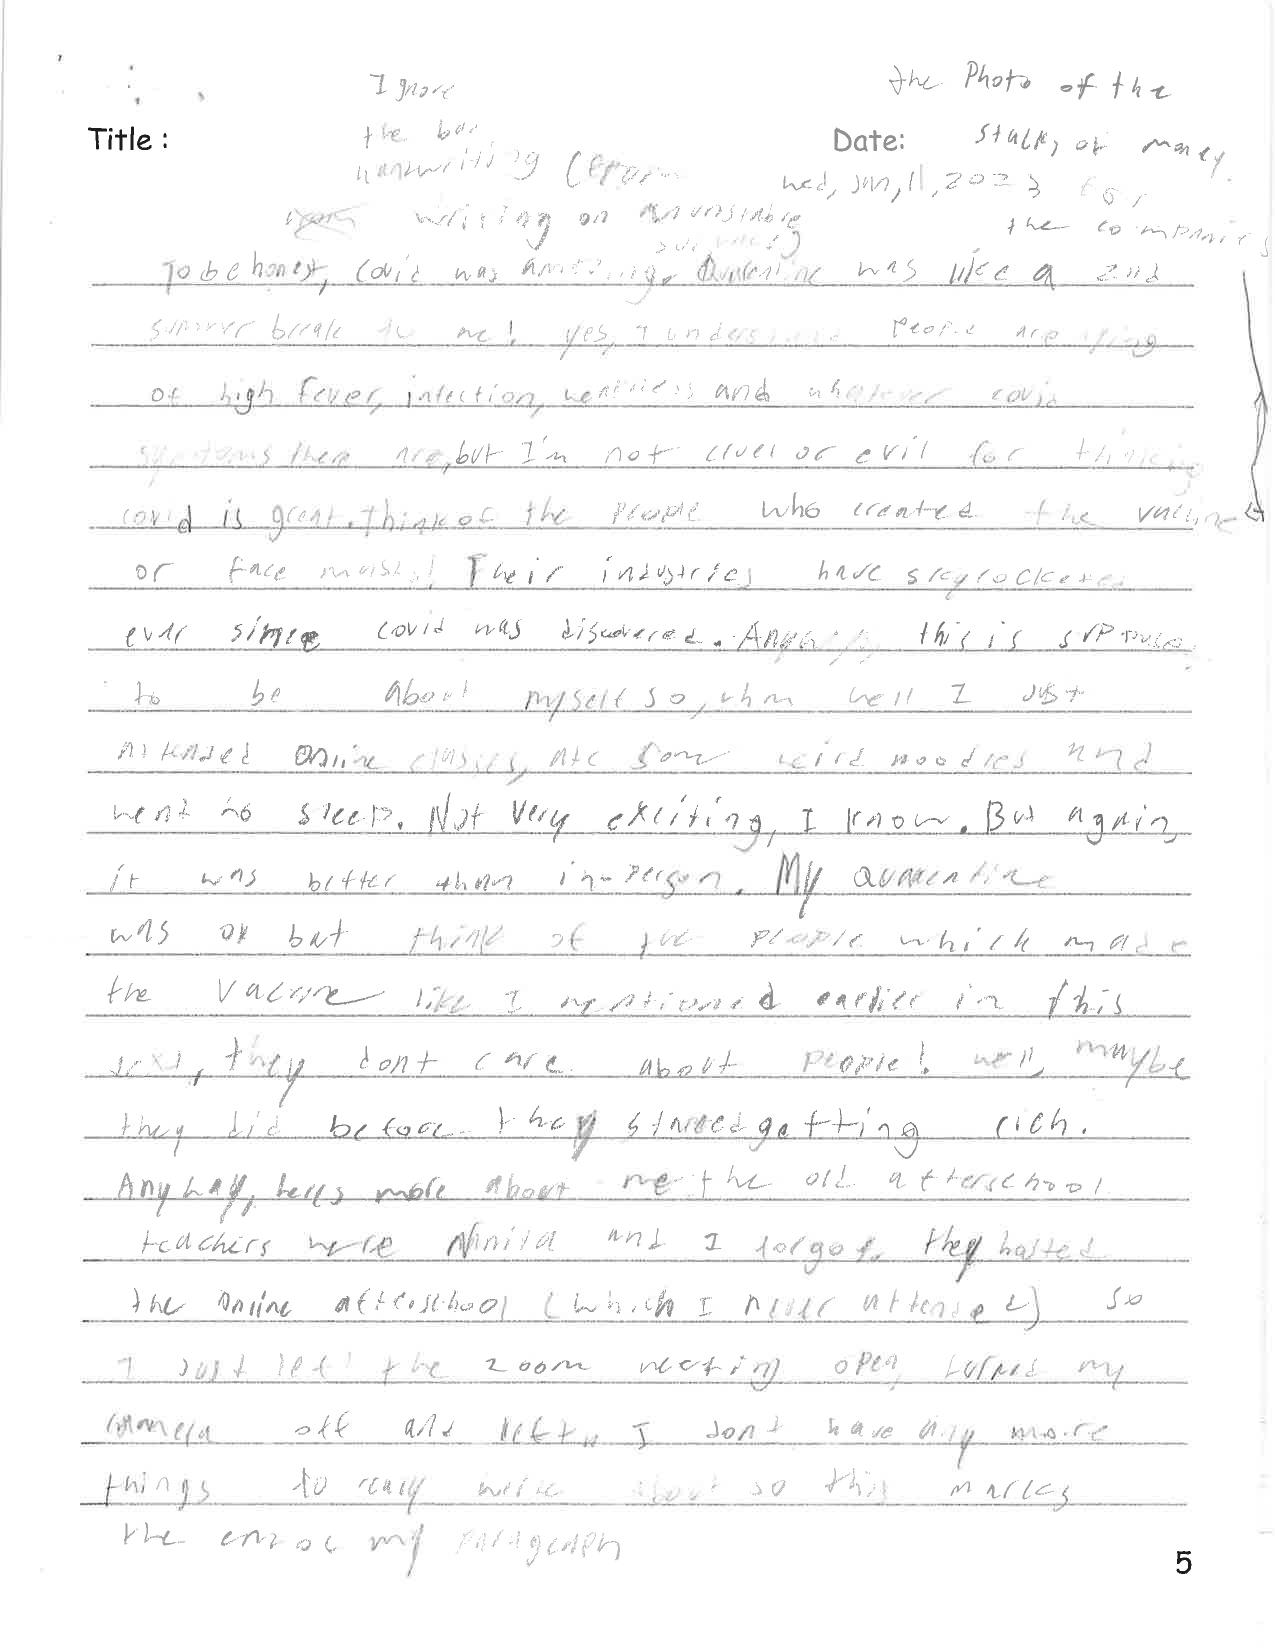 Ignore
the bad
hanzwriting (
writing on an unstable
surface)
the Photo of the
stalk, of money
for
the companies
Title :
Date:
wed, jan, 11, 2023
To be honest, Covid was amazing. Quarentine was like a 2nd
summer break to me! yes, I understand People are dying
of high fever, infection, weakness and whatever covid
symptoms there are, but I'm not cruel or evil for thinking
covid is great. think of the people who created the vaccine
or face masks! Their industries have skyrocketed
ever since covid was discovered. Anyway, this is suppose
to be about myself so, uhm well I just
attended online classes, ate some weird noodles and
went to sleep. Not very exciting, I know. But again,
it was better than in-person. My quarentine
was ok but think of the people which made
the Vaccine like I mentioned earlier in this
text, they dont care about people! well, maybe
they did before they started getting rich.
Anyway, heres more about me the old afterschool
teachers were and I forgot. they hosted
the online afterschool (which I never attended) so
I just left the zoom meeting open, turned my
camera off and left. I dont have any more
things to really write about so this marks
the end of my paragraph
5